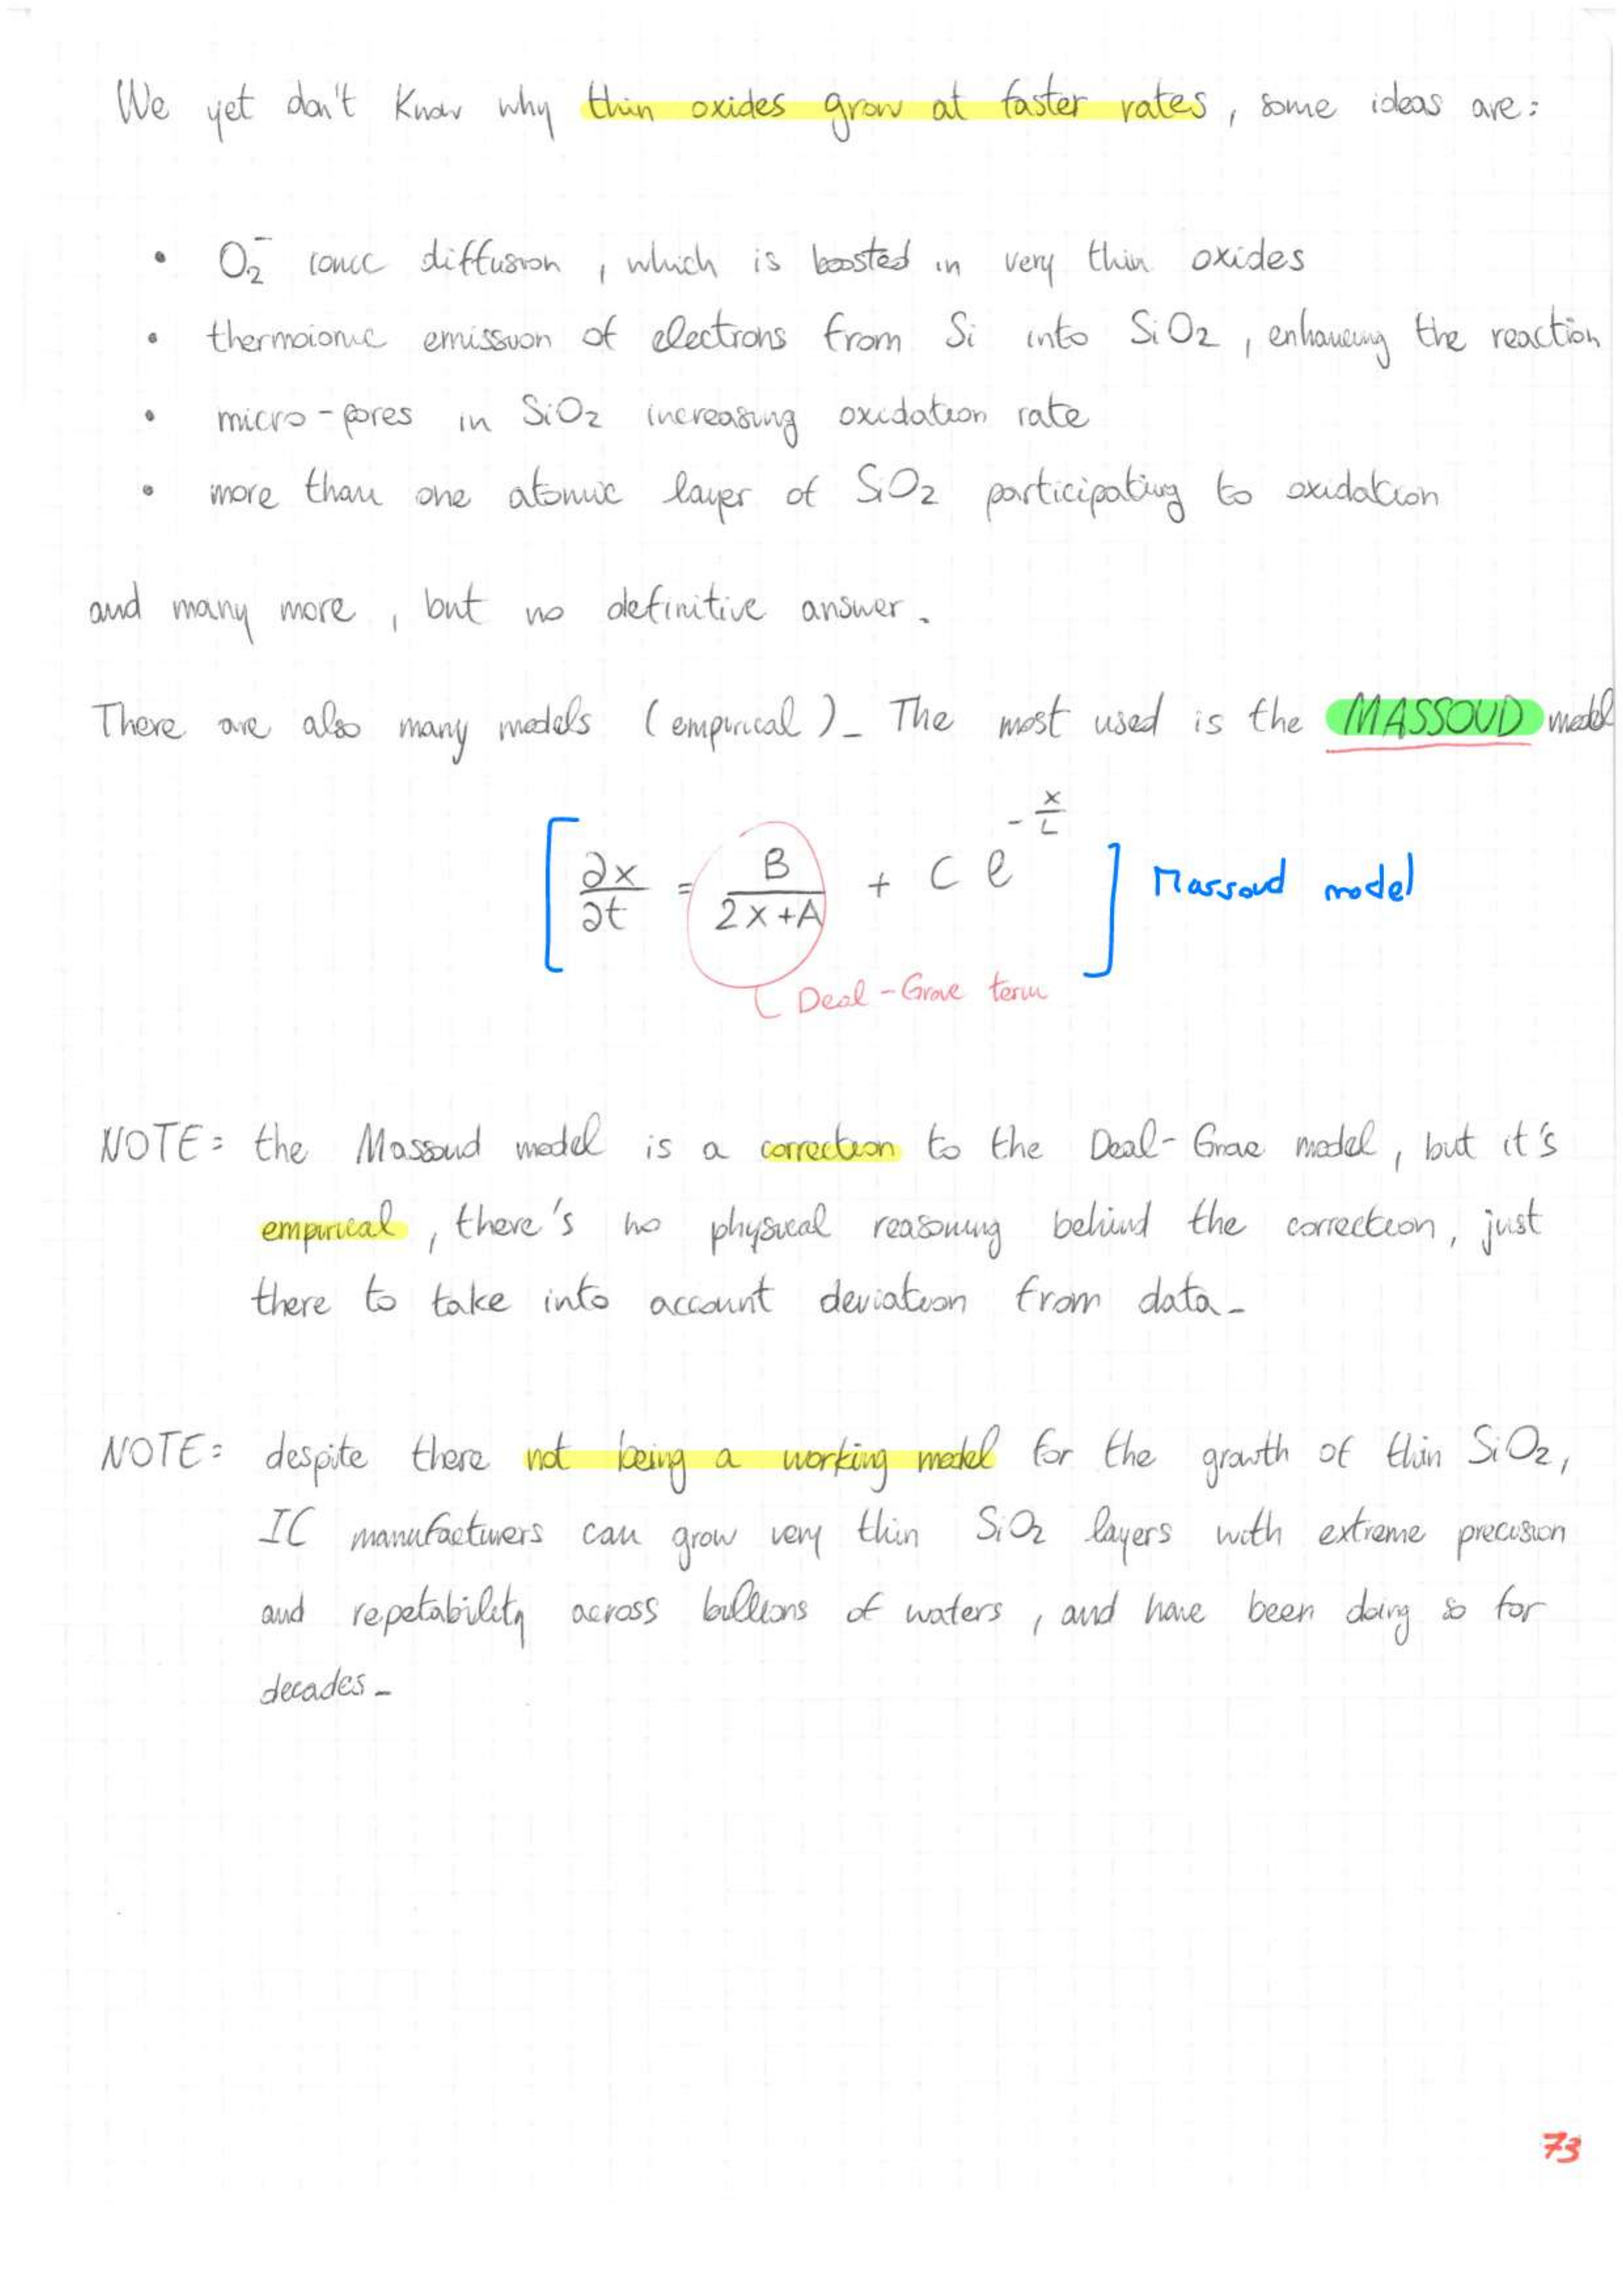 We yet don't know why thin oxides grow at faster rates, some ideas are:
• O₂⁻ ionic diffusion, which is boosted in very thin oxides
• thermoionic emission of electrons from Si into SiO₂, enhancing the reaction
• micro-pores in SiO₂ increasing oxidation rate
• more than one atomic layer of SiO₂ participating to oxidation
and many more, but no definitive answer.
There are also many models (empirical)_ The most used is the MASSOUD model
[∂x/∂t = B/(2x+A) + C e^(-x/L)] Massoud model
Deal-Grove term
NOTE: the Massoud model is a correction to the Deal-Grove model, but it's
empirical, there's no physical reasoning behind the correction, just
there to take into account deviation from data_
NOTE: despite there not being a working model for the growth of thin SiO₂,
IC manufacturers can grow very thin SiO₂ layers with extreme precision
and repetability across billions of wafers, and have been doing so for
decades_
73